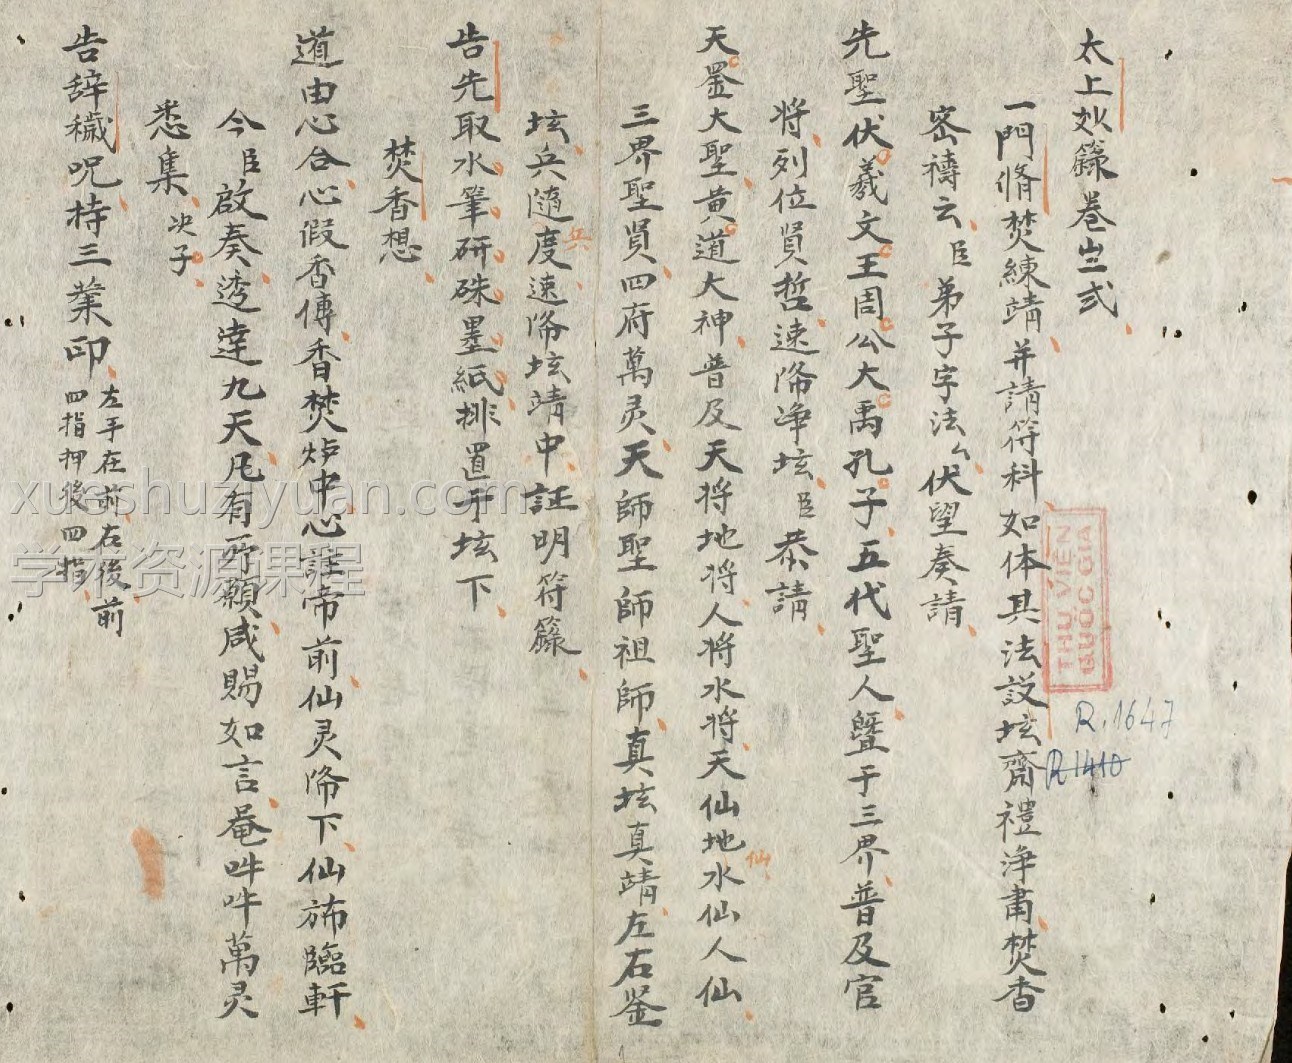 太上妙籙卷𪜀弍
一門脩焚練靖并請符科如体具法設坛齋禮淨肅焚香
密禱云臣弟子字法厶伏望奏請
先聖伏羲文王周公大禹孔子五代聖人曁于三界普及官
将列位賢哲速降净坛臣恭請
天罡大聖黄道大神普及天将地将人将水将天仙地水仙人仙
仙
三界聖賢四府萬灵天師聖師祖師真坛真靖左右鉴
坛兵隨度速降坛靖中証明符籙
兵
告先取水筆研硃墨紙排置于坛下
焚香想
道由心合心假香傳香焚炉中心誰帝前仙灵降下仙斾臨軒
今臣啟奏透達九天凡有所願咸賜如言菴吽吽萬灵
悉集决子
告辞穢呪持三業印左手在前右後前
四指押後四指
THƯ VIỆN
QUỐC GIA
R.1647
R1410
xueshuziyuan.com
学术资源课程